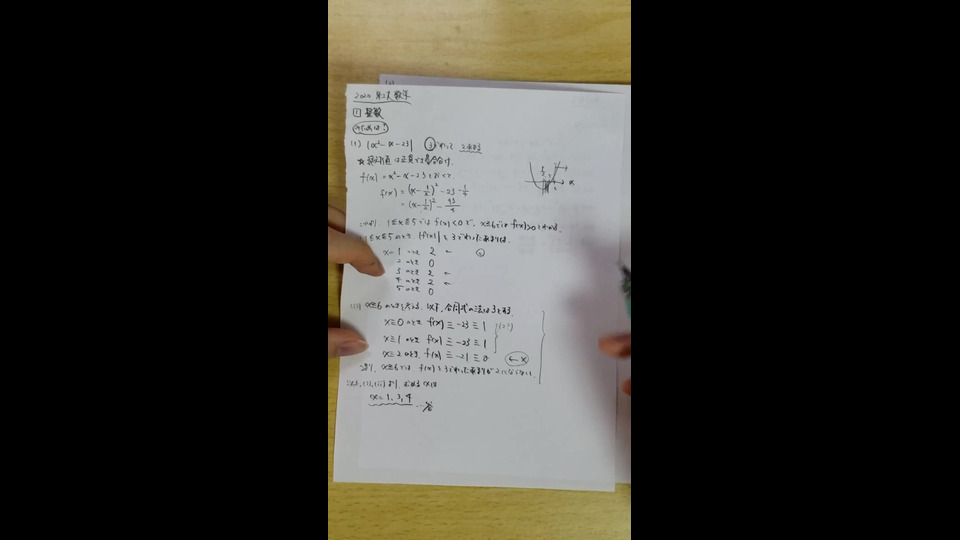 2020 第2次 数学
1 整数
(1) |x²-x-23| 3でわって 2余る
f(x) = x²-x-23とおくと
f(x) = (x-1/2)²-23-1/4
= (x-1/2)²-93/4
1≦x≦5では f(x)<0で, x≧6では f(x)>0
1≦x≦5のとき |f(x)|を3でわったあまりは,
x=1 のとき 2 ←
2 のとき 0
3 のとき 2 ←
4 のとき 2 ←
5 のとき 0
x≧6 のときを考える. 以下, 合同式の法は3とする
x≡0 のとき f(x)≡-23≡1
x≡1 のとき f(x)≡-23≡1
x≡2 のとき f(x)≡-21≡0 ←×
x≧6では f(x)を3でわったあまりが2にならない.
より, 求める xは
x=1,3,4 …答